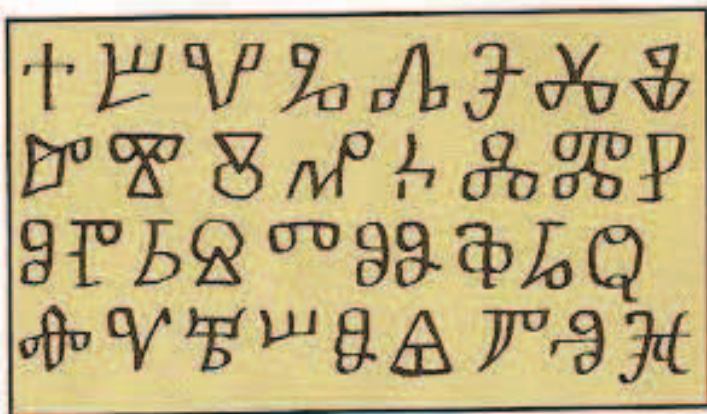 ⰀⰁⰂⰃⰄⰅⰆⰇ
ⰈⰊⰹⰌⰍⰎⰏⰐ
ⰑⰒⰓⰔⰕⰖⰗⰘⰙ
ⰛⰜⰝⰞⰟⰡⰣⰨⰫ